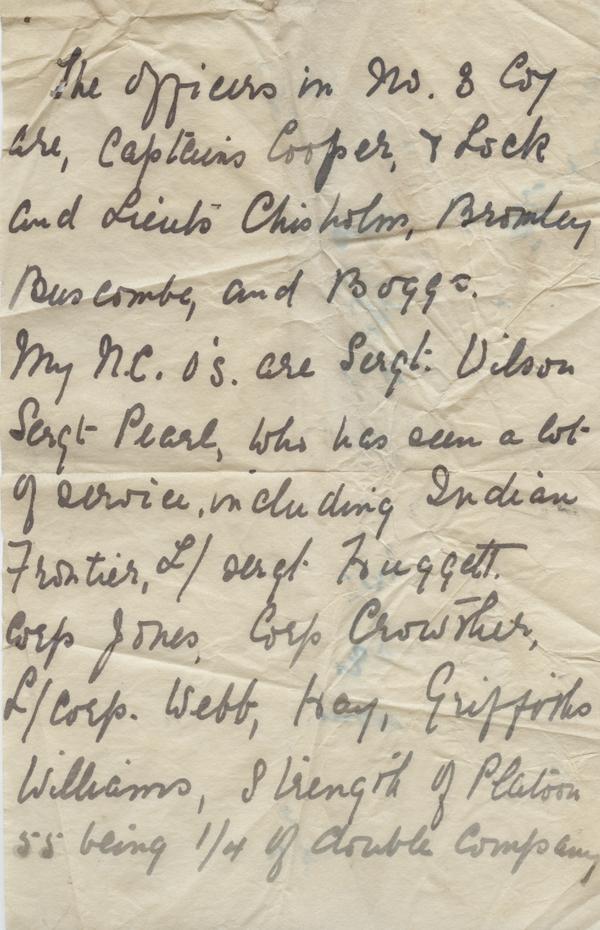 The officers in No. 3 Coy
are, Captains Cooper, & Lock
and Lieuts Chisholm, Bromley
Buscombe, and Boggs.
My N.C.O's. are Sergt. Vilson
Sergt Pearl, who has seen a lot
of service, including Indian
Frontier, L/sergt Huggett.
Corp Jones, Corp Crowther,
L/corp. Webb, Hay, Griffiths
Williams, Strength of Platoon
55 being 1/4 of double Company